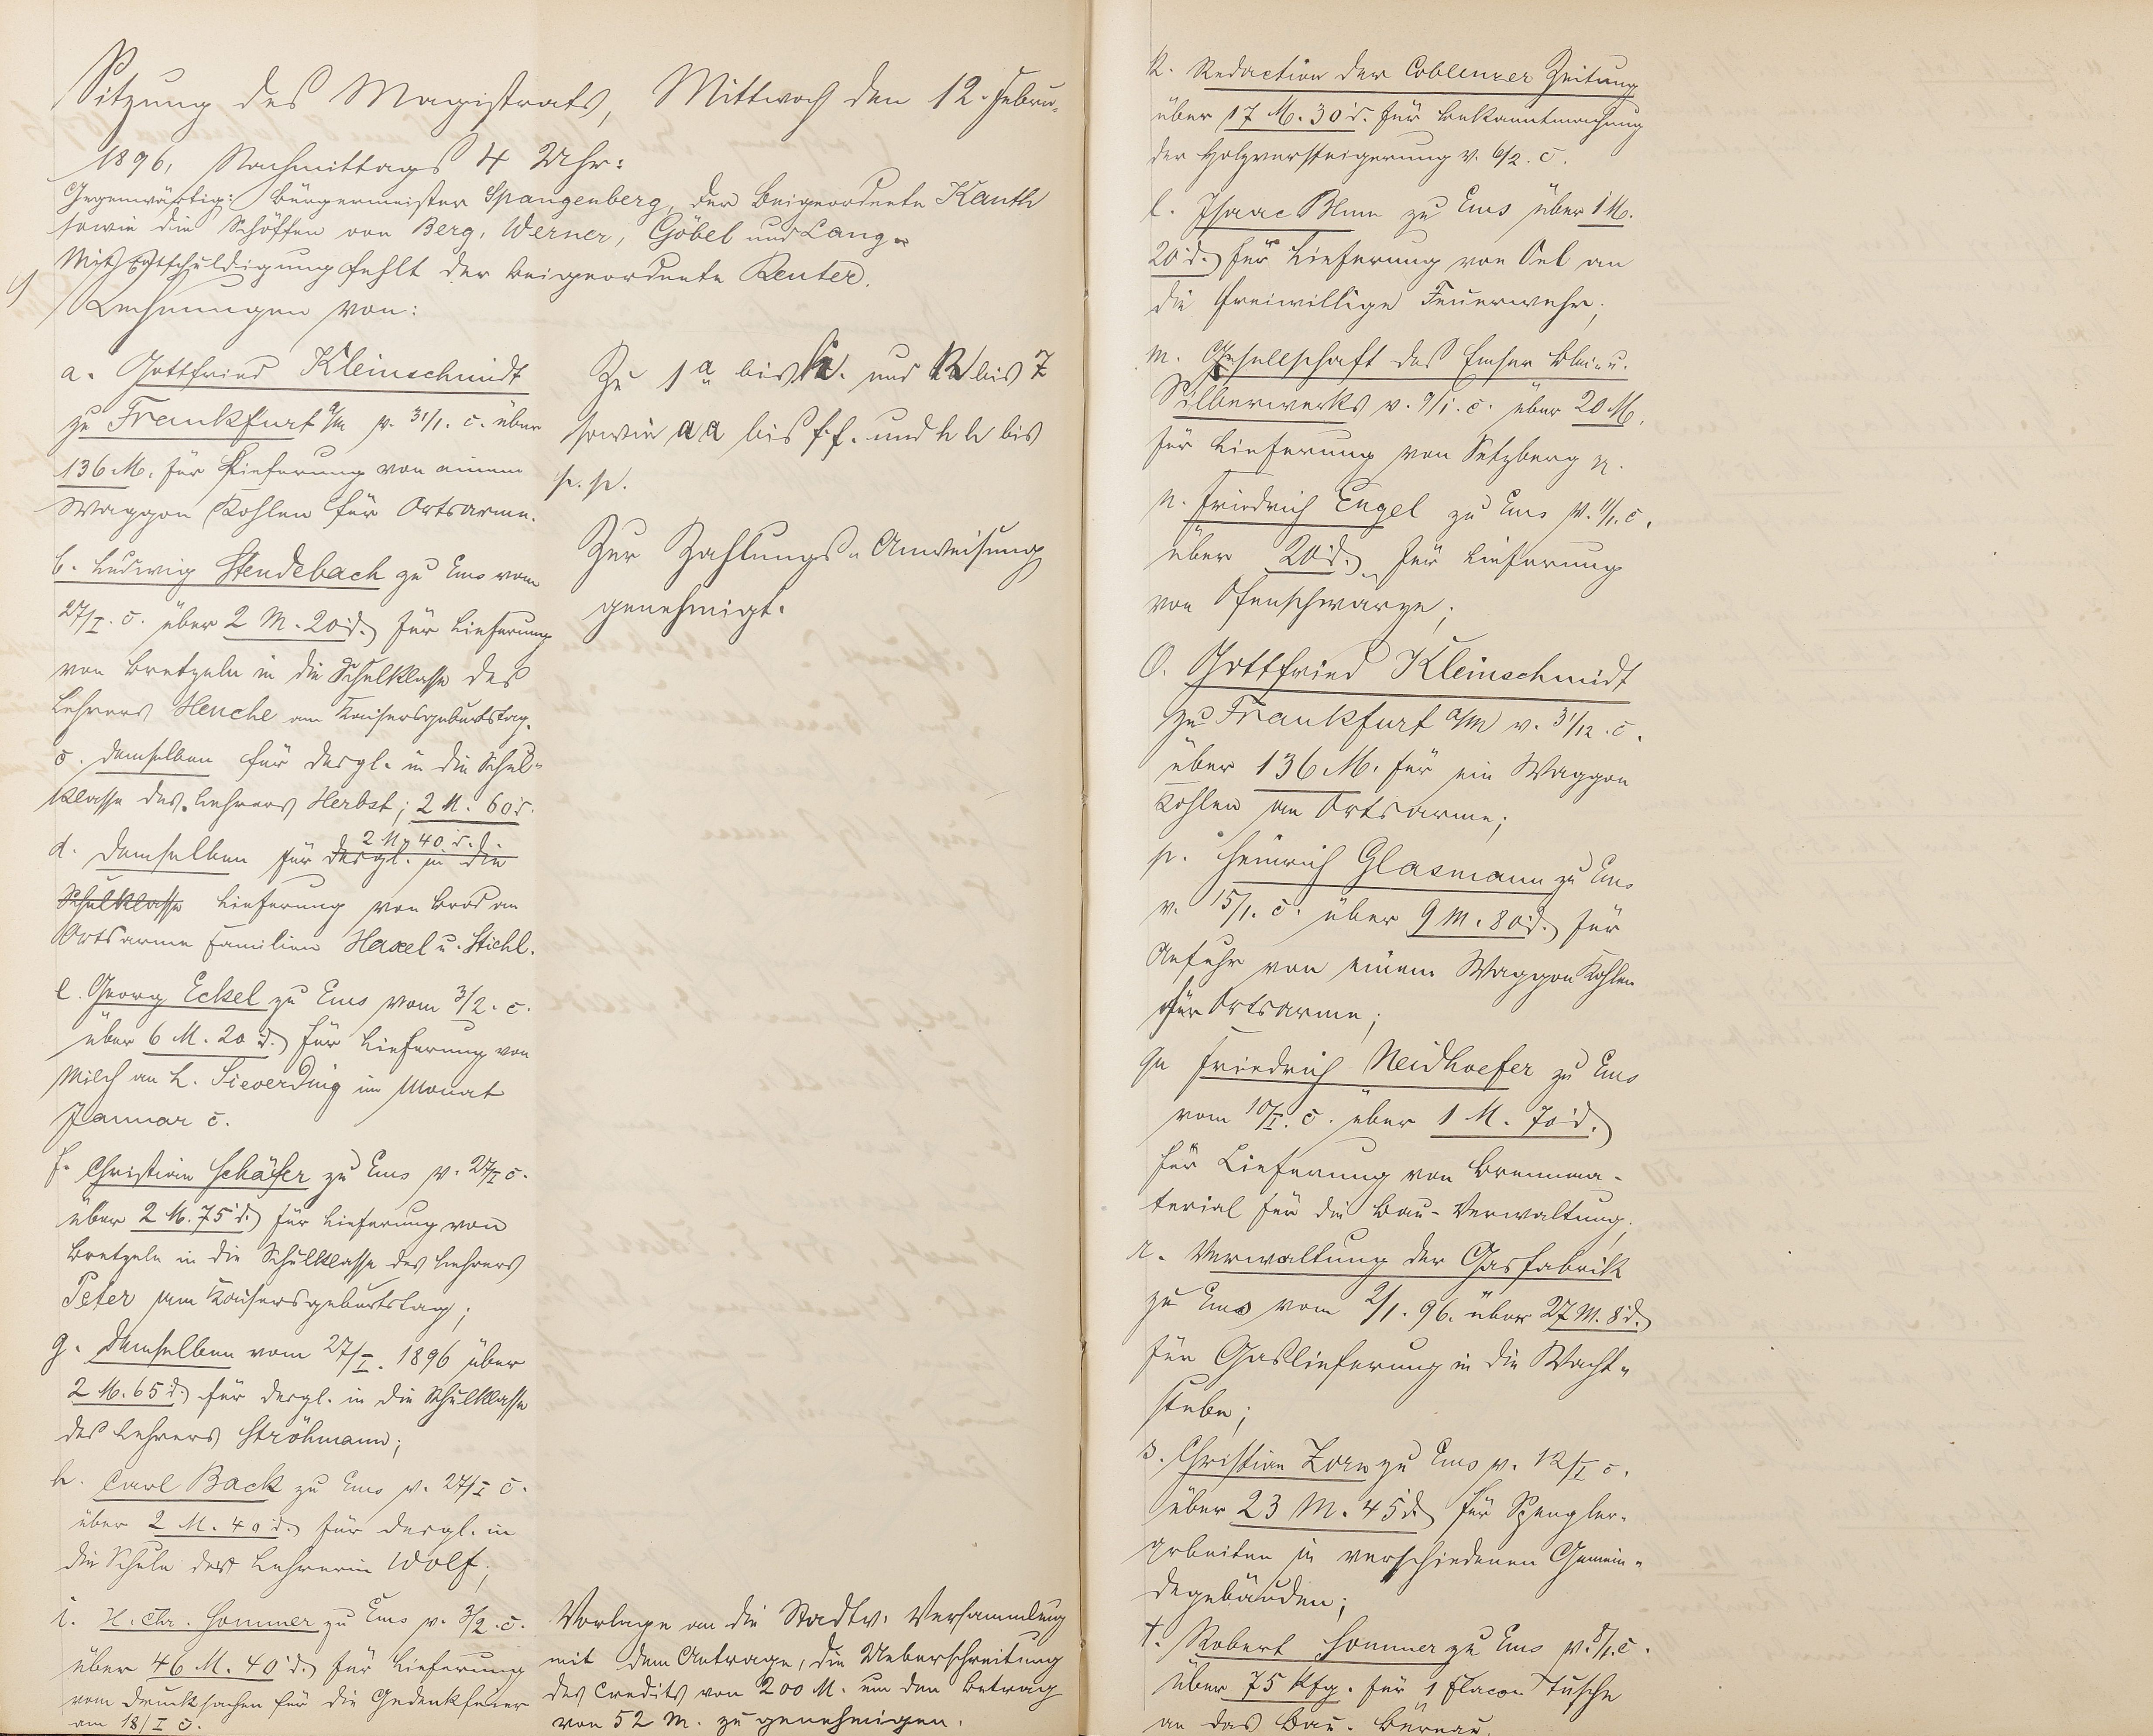 Sitzung des Magistrats, Mittwoch den 12. Febru-
1896, Nachmittags 4 Uhr:
Gegenwärtig: Bürgermeister Spangenberg, der Beigeordnete Kauth
sowie die Schöffen von Berg, Werner, Göbel und Lang.
Mit Entschuldigung fehlt der Beigeordnete Reuter.
1) Rechnungen von:
a. Gottfried Kleinschmidt
zu Frankfurt a/M v. 31/1. c. über
136 M. für Lieferung von einem
Waggon Kohlen für Ortsarme.
b. Ludwig Stendebach zu Ems vom
27/I. c. über 2 M. 20 d. für Lieferung
von Bretzeln in die Schulklasse des
Lehrers Henche am Kaisersgeburtstag.
c. demselben für dergl. in die Schul-
klasse des Lehrers Herbst; 2 M. 60 d.
2 M. 40 d.
d. demselben für dergl. in die
Schulklasse Lieferung von Brod an
Ortsarme Familien Haxel u. Stichl.
e. Georg Eckel zu Ems vom 3/2. c.
über 6 M. 20 d. für Lieferung von
Milch an h. Sieverding im Monat
Januar c.
f. Christian Schäfer zu Ems v. 27/I c.
über 2 M. 75 d. für Lieferung von
Bretzeln in die Schulklasse des Lehrers
Peter zum Kaisersgeburtstag;
g. demselben vom 27/I. 1896 über
2 M. 65 d. für dergl. in die Schulklasse
des Lehrers Ströhmann;
h. Carl Back zu Ems v. 27/I c.
über 2 M. 40 d. für dergl. in
die Schule der Lehrerin Wolf;
i. H. Chr. Sommer zu Ems v. 3/2. c.
über 46 M. 40 d. für Lieferung
von Drucksachen für die Gedenkfeier
am 18/I c.
Zu 1 a bis h. und k bis z
sowie a a bis f. f. und h h bis
p. p.
Zur Zahlungs-Anweisung
genehmigt.
Vorlage an die Stadtv. Versammlung
mit dem Antrage, die Ueberschreitung
des Credits von 200 M. um den Betrag
von 52 M. zu genehmigen.
k. Redaction der Coblenzer Zeitung
über 17 M. 30 d. für Bekanntmachung
der Holzversteigerung v. 6/2. c.
l. Isaac Blum zu Ems über 1 M.
20 d. für Lieferung von Oel an
die freiwillige Feuerwehr;
m. Gesellschaft des Emser Blei- u.
Silberwerks v. 9/1. c. über 20 M.
für Lieferung von Setzberg
n. Friedrich Engel zu Ems v. 11/1. c.
über 20 d. für Lieferung
von Ofenschwarze;
o. Gottfried Kleinschmidt
zu Frankfurt a/M v. 31/12. c.
über 136 M. für ein Waggon
Kohlen an Ortsarme;
p. Heinrich Glasmann zu Ems
v. 15/1. c. über 9 M. 80 d. für
Anfuhr von einem Waggon Kohlen
für Ortsarme;
q. Friedrich Neidhoefer zu Ems
vom 10/I. c. über 1 M. 70 d.
für Lieferung von Brennma-
terial für die Bau-Verwaltung;
r. Verwaltung der Gasfabrik
zu Ems vom 2/1. 96. über 27 M. 8 d.
für Gaslieferung in die Wacht-
stube;
s. Christian Zorn zu Ems v. 12/I c.
über 23 M. 45 d. für Spengler-
arbeiten in verschiedenen Gemein-
degebäuden;
t. Robert Sommer zu Ems v. 8/1. c.
über 75 Pfg. für 1 Flacon Tusche
an das Bau-Büreau.